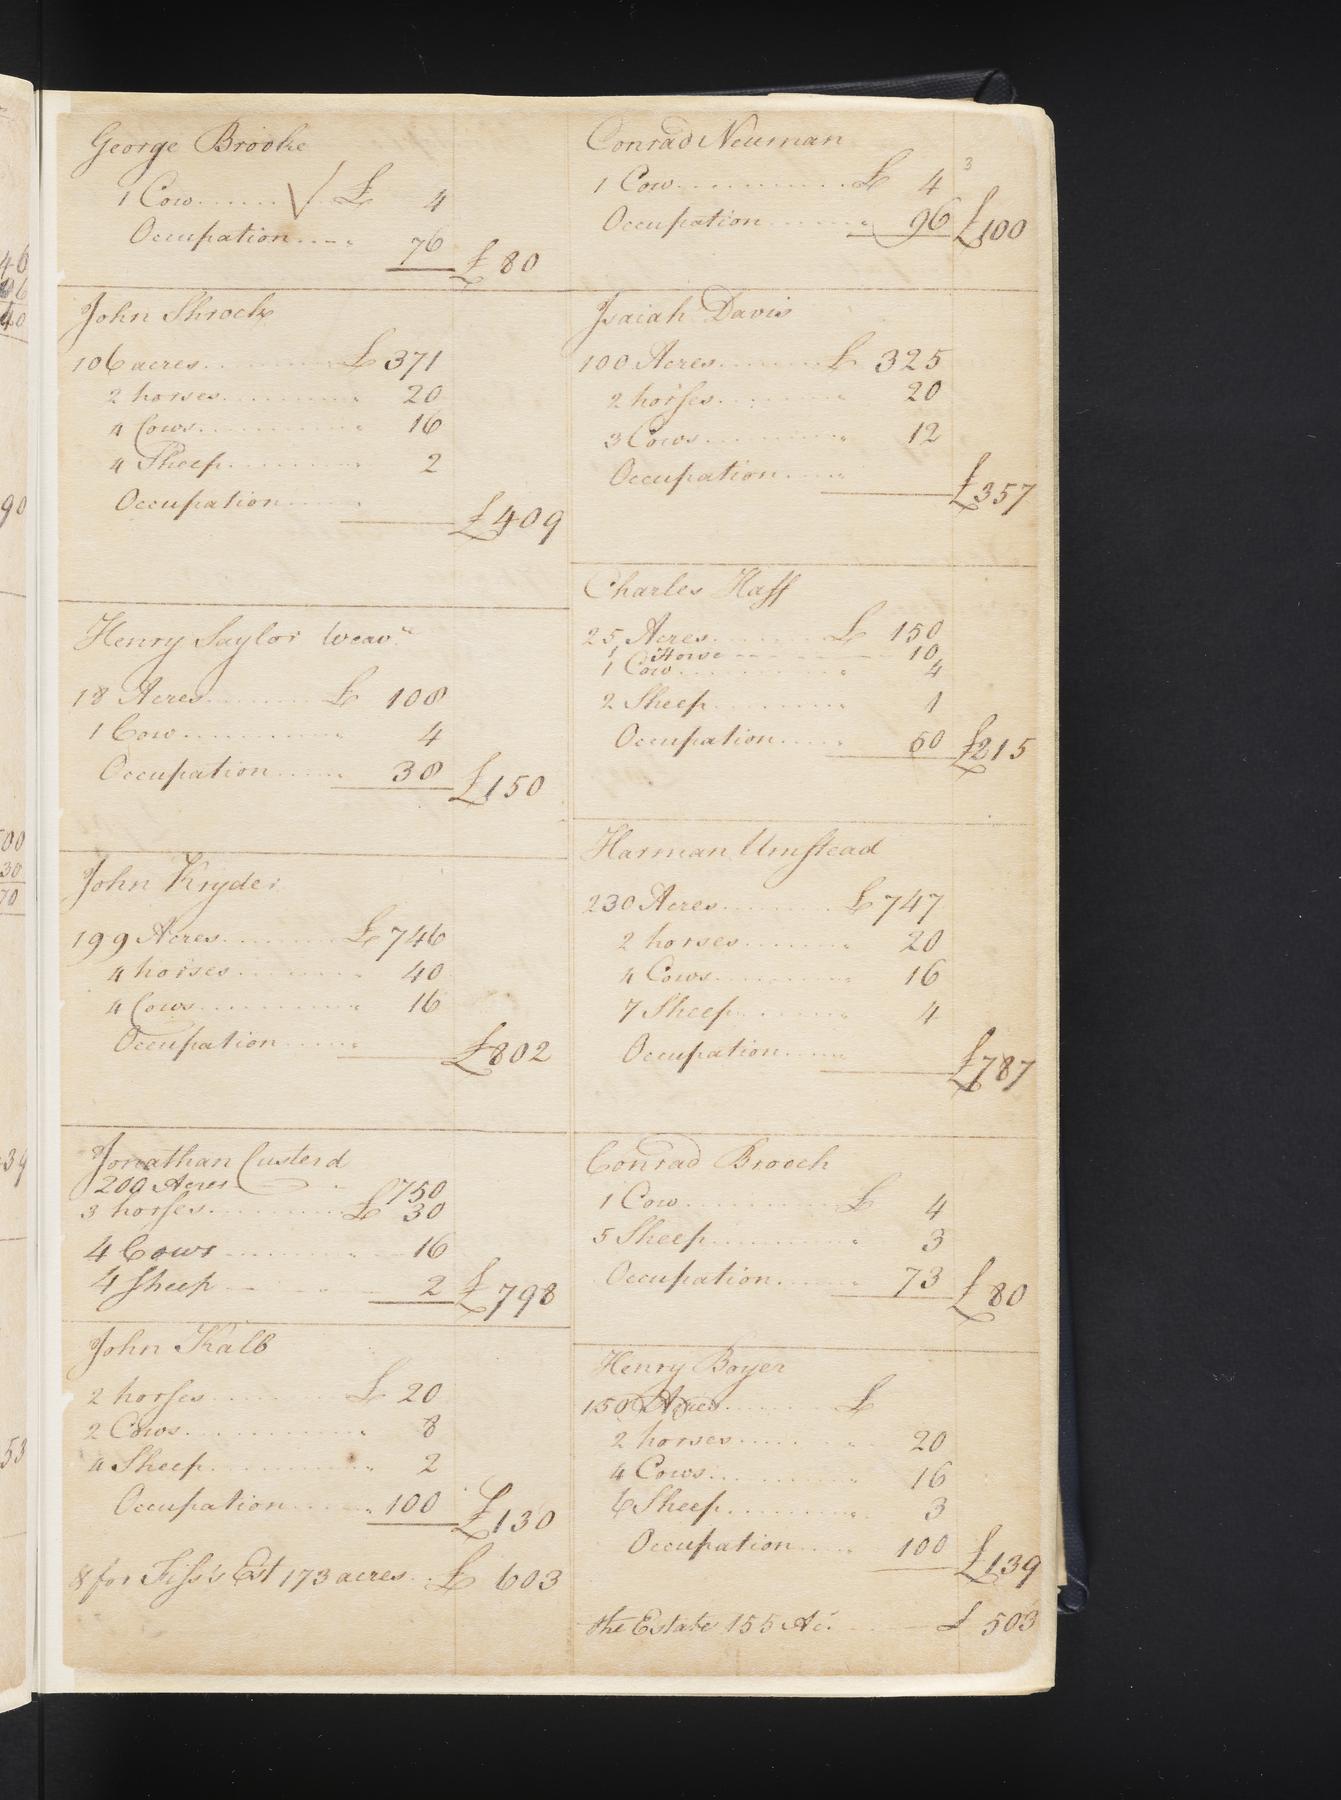 George Brooke
1 Cow...... √ £ 4
Occupation.... 76 £80
John Shrock
106 acres........ £371
2 horses........ 20
4 Cows........ 16
4 Sheep........ 2
Occupation....
£409
Henry Saylor weavr
18 Acres........ £ 108
1 Cow........ 4
Occupation.... 38 £150
John Kryder
199 Acres........ £746
4 horses........ 40
4 Cows........ 16
Occupation....
£802
Jonathan Custerd
200 Acres 750
3 horses........ £ 30
4 Cows........ 16
4 Sheep........ 2 £798
John Kalb
2 horses........ £ 20
2 Cows........ 8
4 Sheep........ 2
Occupation.... 100 £130
& for Fiss's Est 173 acres.. £ 603
Conrad Neuman
3
1 Cow........ £ 4
Occupation.... 96 £100
Isaiah Davis
100 Acres........ £ 325
2 horses........ 20
3 Cows........ 12
Occupation....
£357
Charles Haff
25 Acres........ £ 150
1 Horse 10
1 Cow........ 4
2 Sheep........ 1
Occupation.... 50 £215
Harman Umstead
230 Acres........ £747
2 horses........ 20
4 Cows........ 16
7 Sheep........ 4
Occupation....
£787
Conrad Brooch
1 Cow........ £ 4
5 Sheep........ 3
Occupation.... 73 £80
Henry Boyer
150 Acres........ £
2 horses........ 20
4 Cows........ 16
6 Sheep........ 3
Occupation.... 100 £139
the Estate 155 Ac. £ 503